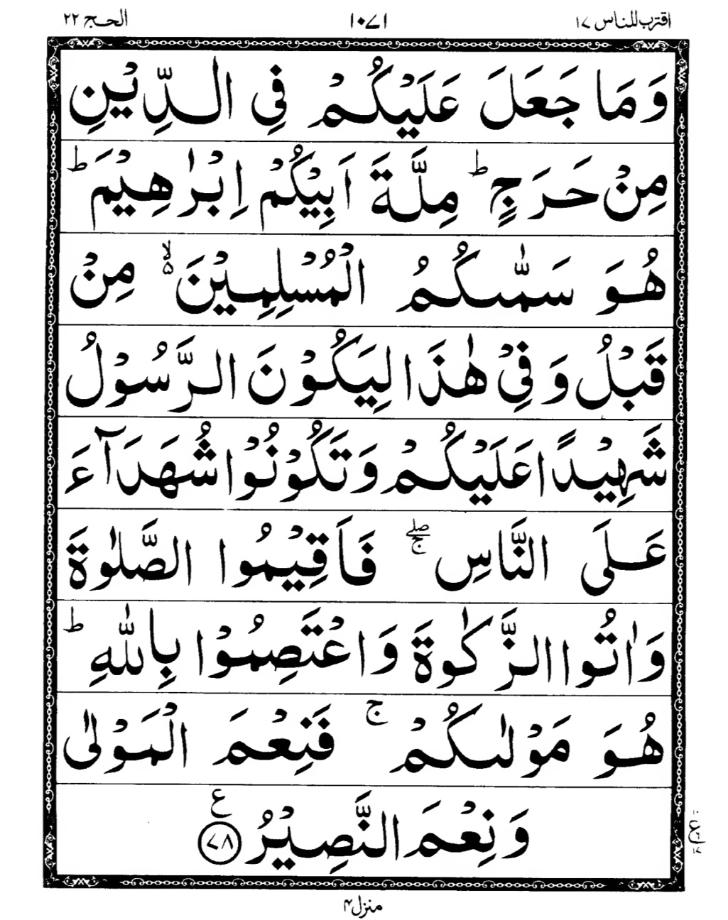 اقترب للناس ۱۷ ۱۰۷۱ الحج ۲۲
وَمَا جَعَلَ عَلَيْكُمْ فِي الدِّيْنِ
مِنْ حَرَجٍ ؕ مِلَّةَ اَبِيْكُمْ اِبْرٰهِيْمَ ؕ
هُوَ سَمّٰىكُمُ الْمُسْلِمِيْنَ ۙ۬ مِنْ
قَبْلُ وَفِيْ هٰذَا لِيَكُوْنَ الرَّسُوْلُ
شَهِيْدًا عَلَيْكُمْ وَتَكُوْنُوْا شُهَدَآءَ
عَلَى النَّاسِ ۖۚ فَاَقِيْمُوا الصَّلٰوةَ
وَاٰتُوا الزَّكٰوةَ وَاعْتَصِمُوْا بِاللّٰهِ ؕ
هُوَ مَوْلٰىكُمْ ۚ فَنِعْمَ الْمَوْلٰى
وَنِعْمَ النَّصِيْرُ ﴿۷۸﴾ ع
منزل ۴